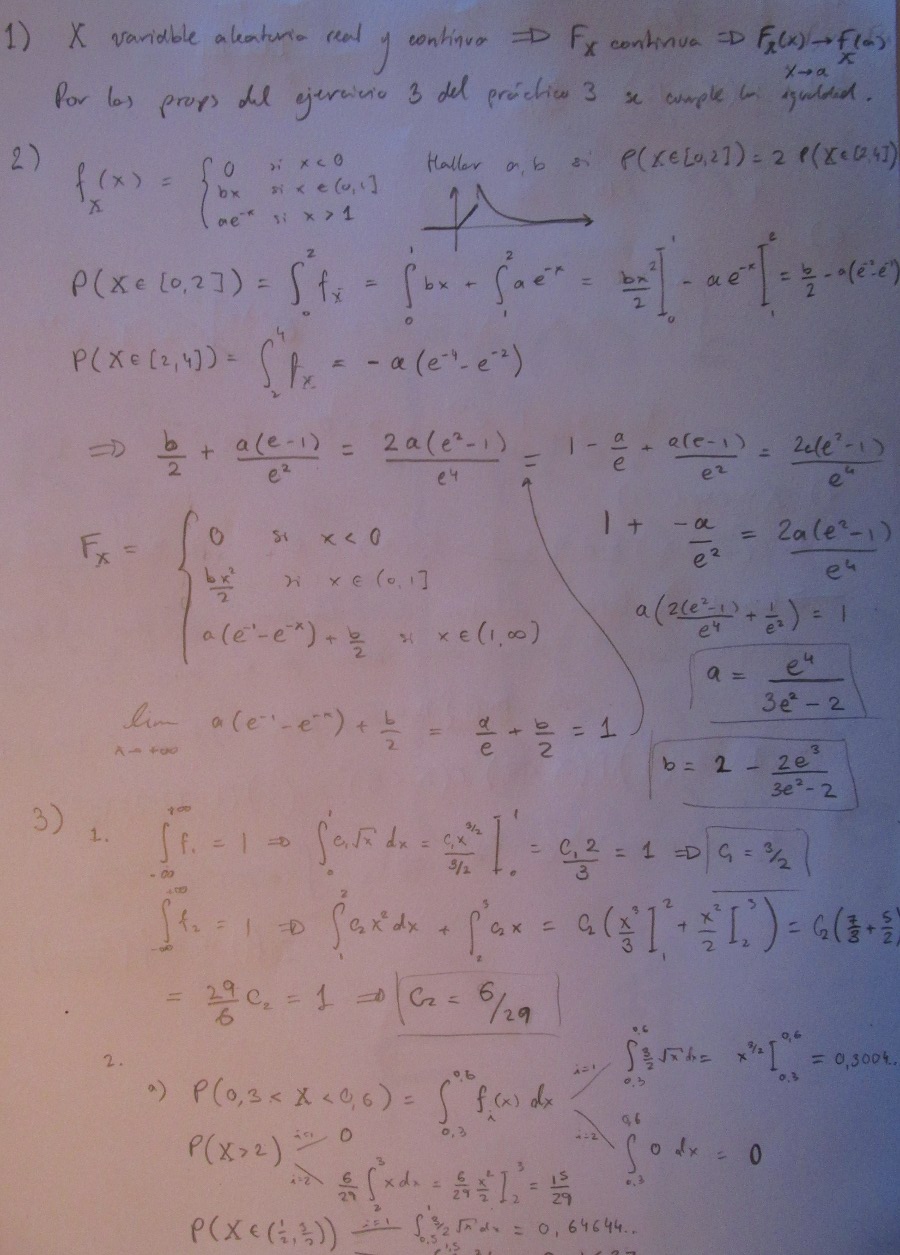 1) X variable aleatoria real y continua ⇒ F_X continua ⇒ F_X(x) → F_X(a)
x→a
Por las props del ejercicio 3 del práctico 3 se cumple la igualdad.
2) f_X(x) = { 0 si x<0 ; bx si x ∈ (0,1] ; ae^{-x} si x > 1 Hallar a, b si P(X∈[0,2]) = 2 P(X∈[2,4])
P(X∈[0,2]) = ∫_0^2 f_X = ∫_0^1 bx + ∫_1^2 a e^{-x} = bx²/2 ]_0^1 - a e^{-x} ]_1^2 = b/2 - a(e^{-2}-e^{-1})
P(X∈[2,4]) = ∫_2^4 f_X = -a(e^{-4} - e^{-2})
⇒ b/2 + a(e-1)/e² = 2a(e²-1)/e⁴ = 1 - a/e + a(e-1)/e² = 2a(e²-1)/e⁴
1 + -a/e² = 2a(e²-1)/e⁴
F_X = { 0 si x < 0 ; bx²/2 si x ∈ (0,1] ; a(e^{-1}-e^{-x}) + b/2 si x∈(1,∞)
a(2(e²-1)/e⁴ + 1/e²) = 1
a = e⁴/(3e²-2)
lim_{x→+∞} a(e^{-1}-e^{-x}) + b/2 = a/e + b/2 = 1
b = 2 - 2e³/(3e²-2)
3) 1. ∫_{-∞}^{+∞} f₁ = 1 ⇒ ∫_0^1 c₁√x dx = c₁x^{3/2}/(3/2) ]_0^1 = C₁2/3 = 1 ⇒ C₁ = 3/2
∫_{-∞}^{+∞} f₂ = 1 ⇒ ∫_1^2 c₂x² dx + ∫_2^3 c₂x = C₂(x³/3 ]_1^2 + x²/2 ]_2^3) = C₂(7/3 + 5/2)
= 29/6 C₂ = 1 ⇒ C₂ = 6/29
2.
a) P(0,3 < X < 0,6) = ∫_{0,3}^{0,6} f_i(x) dx
i=1 ∫_{0,3}^{0,6} 3/2 √x dx = x^{3/2} ]_{0,3}^{0,6} = 0,3004..
i=2 ∫_{0,3}^{0,6} 0 dx = 0
P(X>2) i=1 0
i=2 6/29 ∫_2^3 x dx = 6/29 x²/2 ]_2^3 = 15/29
P(X∈(1/2, 3/2)) i=1 ∫_{0,5}^1 3/2 √x dx = 0,64644..